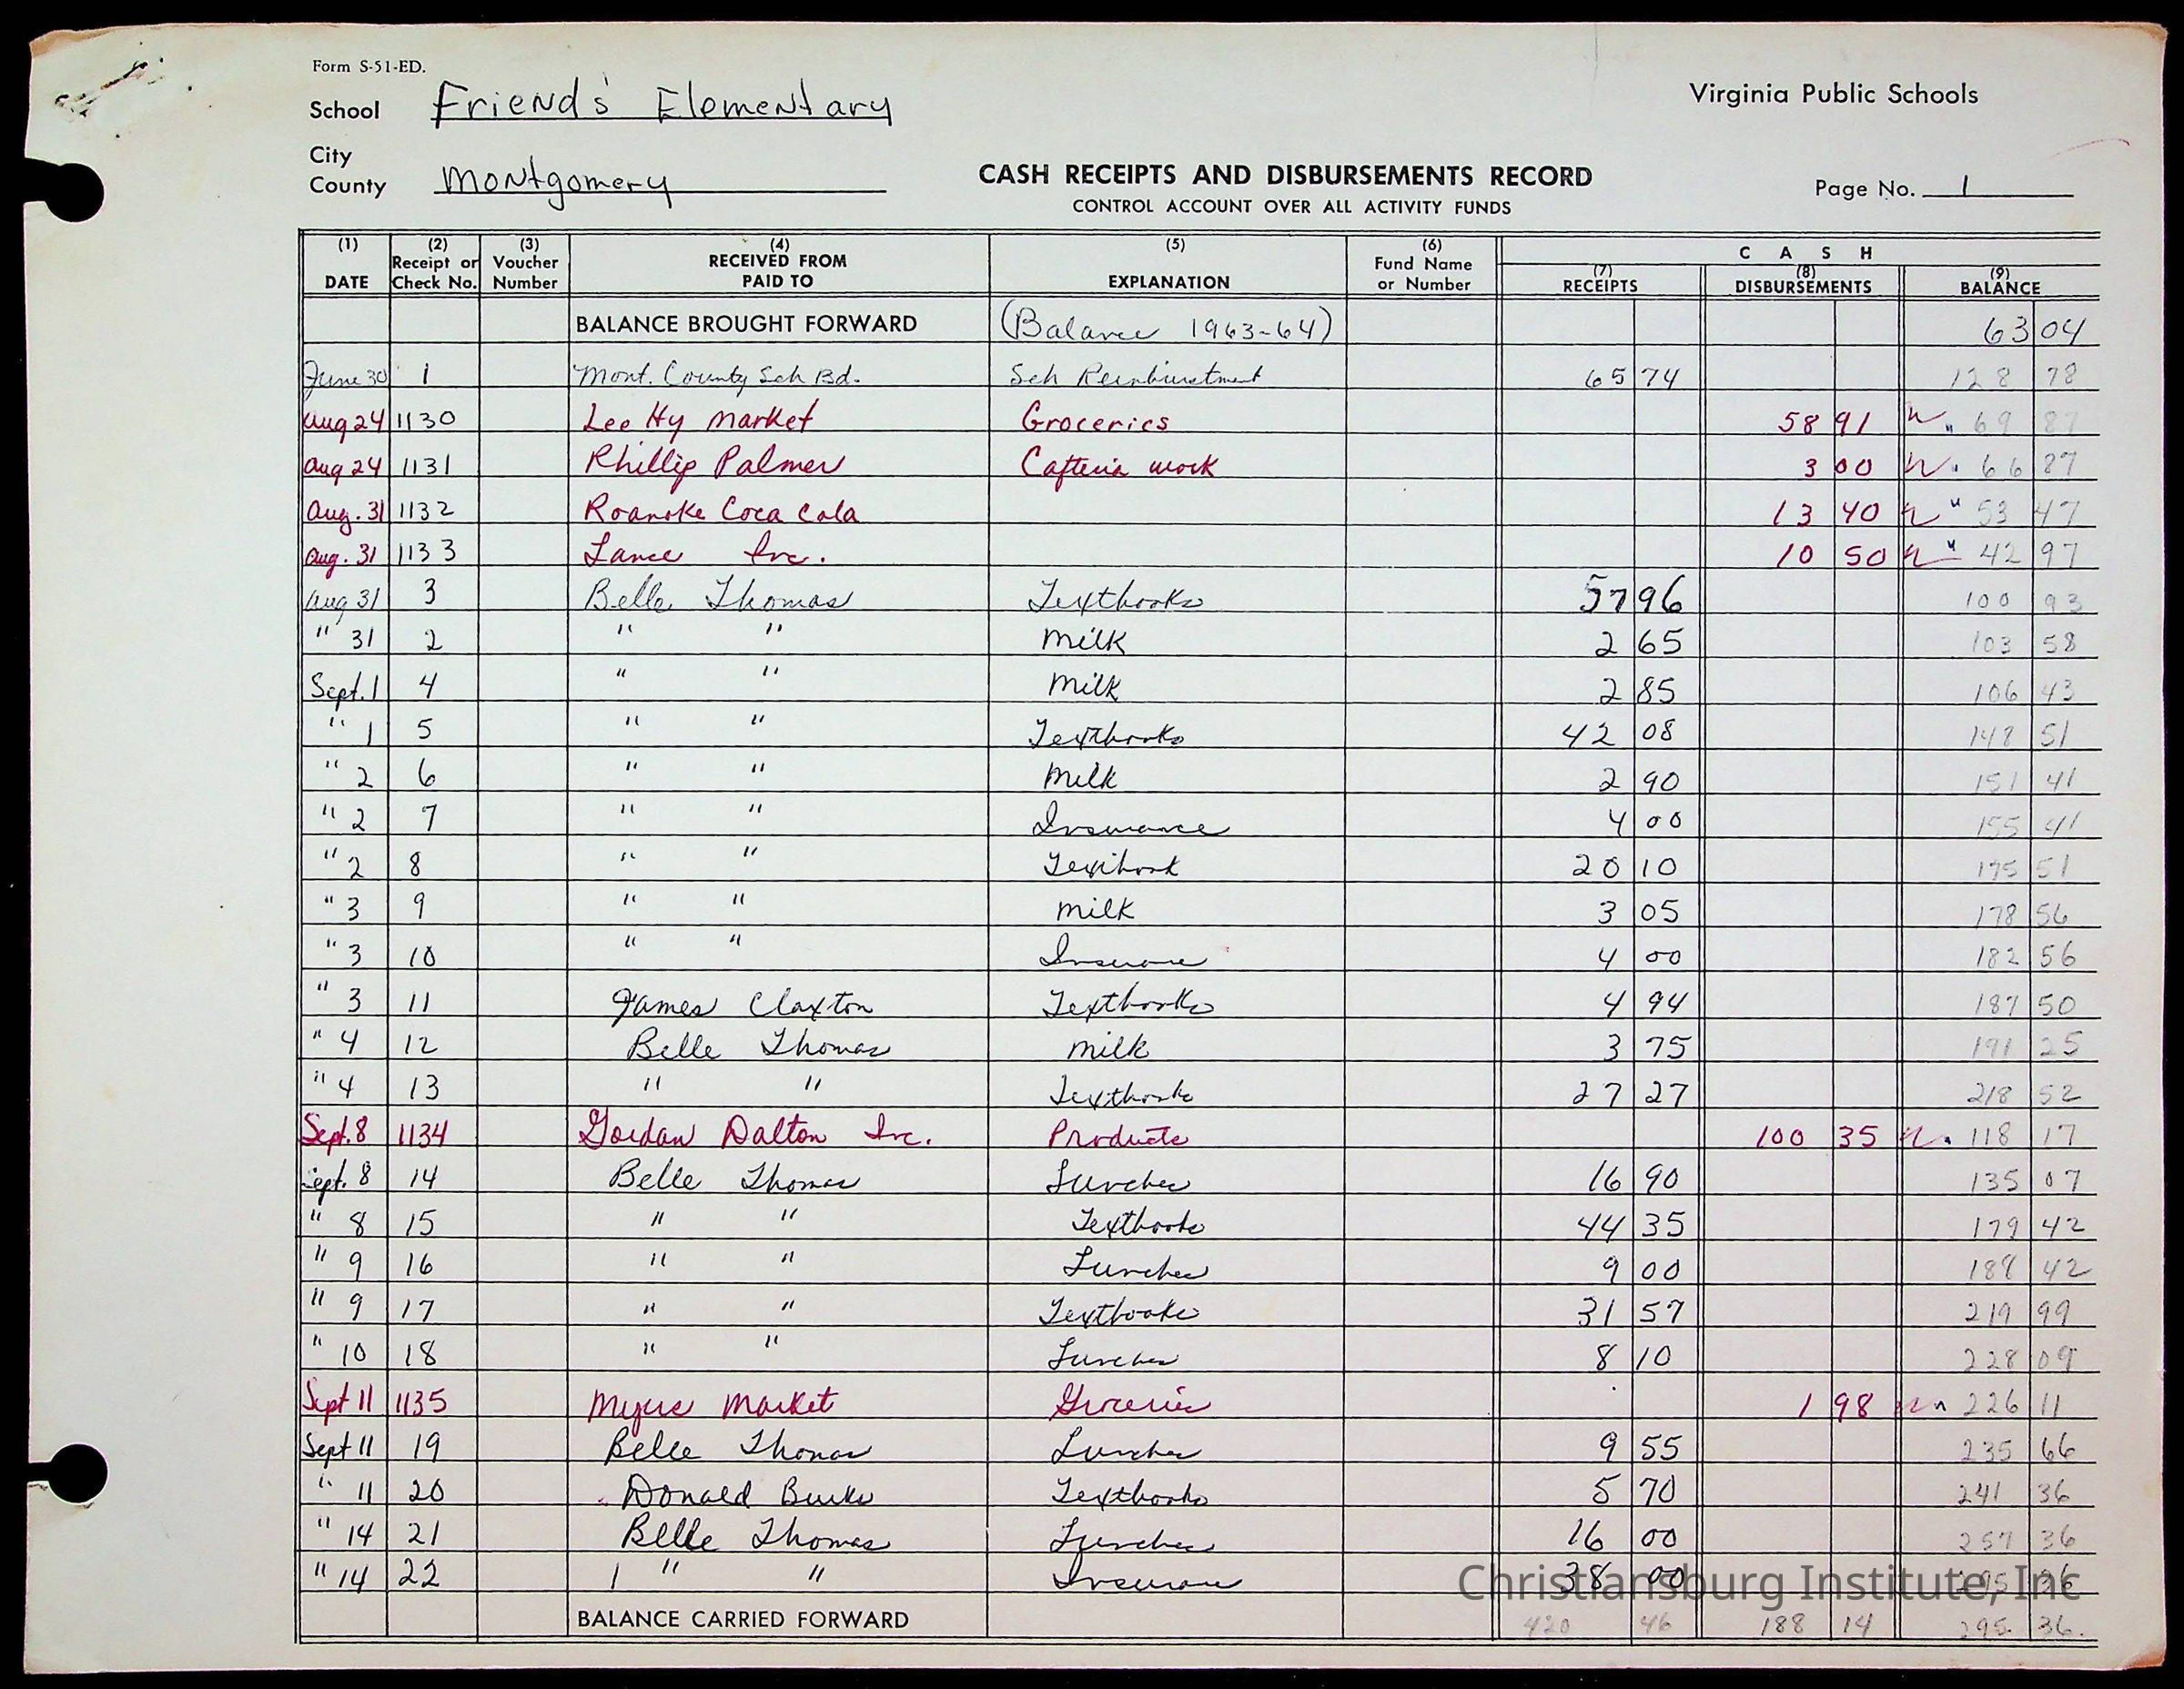 Form S-51-ED.
School Friend's Elementary
Virginia Public Schools
City
County Montgomery
CASH RECEIPTS AND DISBURSEMENTS RECORD
Page No. 1
CONTROL ACCOUNT OVER ALL ACTIVITY FUNDS
(1) (2) (3) (4) (5) (6) C A S H
DATE Receipt or Check No. Voucher Number RECEIVED FROM PAID TO EXPLANATION Fund Name or Number (7) RECEIPTS (8) DISBURSEMENTS (9) BALANCE
BALANCE BROUGHT FORWARD (Balance 1963-64) 63 04
June 30 1 Mont. County Sch Bd. Sch Reimburstment 65 74 128 78
Aug 24 1130 Lee Hy Market Groceries 58 91 69 87
Aug 24 1131 Phillip Palmer Cafteria work 3 00 66 87
Aug. 31 1132 Roanoke Coca Cola 13 40 53 47
Aug. 31 1133 Lance Inc. 10 50 42 97
Aug 31 3 Belle Thomas Textbooks 57 96 100 93
" 31 2 " " Milk 2 65 103 58
Sept. 1 4 " " Milk 2 85 106 43
" 1 5 " " Textbooks 42 08 148 51
" 2 6 " " Milk 2 90 151 41
" 2 7 " " Insurance 4 00 155 41
" 2 8 " " Textbook 20 10 175 51
" 3 9 " " Milk 3 05 178 56
" 3 10 " " Insurance 4 00 182 56
" 3 11 James Claxton Textbooks 4 94 187 50
" 4 12 Belle Thomas Milk 3 75 191 25
" 4 13 " " Textbooks 27 27 218 52
Sept. 8 1134 Gordan Dalton Inc. Products 100 35 118 17
Sept. 8 14 Belle Thomas Lunches 16 90 135 07
" 8 15 " " Textbooks 44 35 179 42
" 9 16 " " Lunches 9 00 188 42
" 9 17 " " Textbooks 31 57 219 99
" 10 18 " " Lunches 8 10 228 09
Sept 11 1135 Myers Market Groceries 1 98 226 11
Sept 11 19 Belle Thomas Lunches 9 55 235 66
" 11 20 Donald Burks Textbooks 5 70 241 36
" 14 21 Belle Thomas Lunches 16 00 257 36
" 14 22 " " Insurance 38 00 295 36
Christiansburg Institute, Inc
BALANCE CARRIED FORWARD 420 46 188 14 295 36.